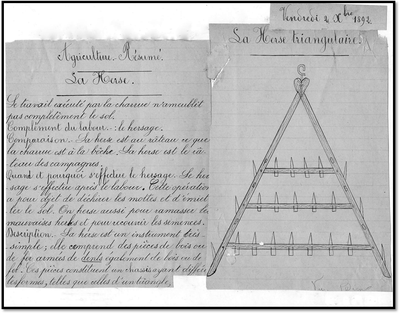 Vendredi 2 Xbre 1892.
Agriculture. Résumé.
La Herse.
Le travail exécuté par la charrue n'ameublit
pas complètement le sol.
Complément du labour : le hersage.
Comparaison. La herse est au râteau ce que
la charrue est à la bêche. La herse est le râ-
teau des campagnes.
Quand et pourquoi s'effectue le hersage. Le her-
sage s'effectue après le labour. Cette opération
a pour objet de déchirer les mottes et d'émiet-
ter le sol. On herse aussi pour ramasser les
mauvaises herbes et pour recouvrir les semences.
Description. La herse est un instrument très-
simple ; elle comprend des pièces de bois ou
de fer armées de dents également de bois ou de
fer. Ces pièces constituent un chassis ayant différen
tes formes, telles que celles d'un triangle
La Herse triangulaire.